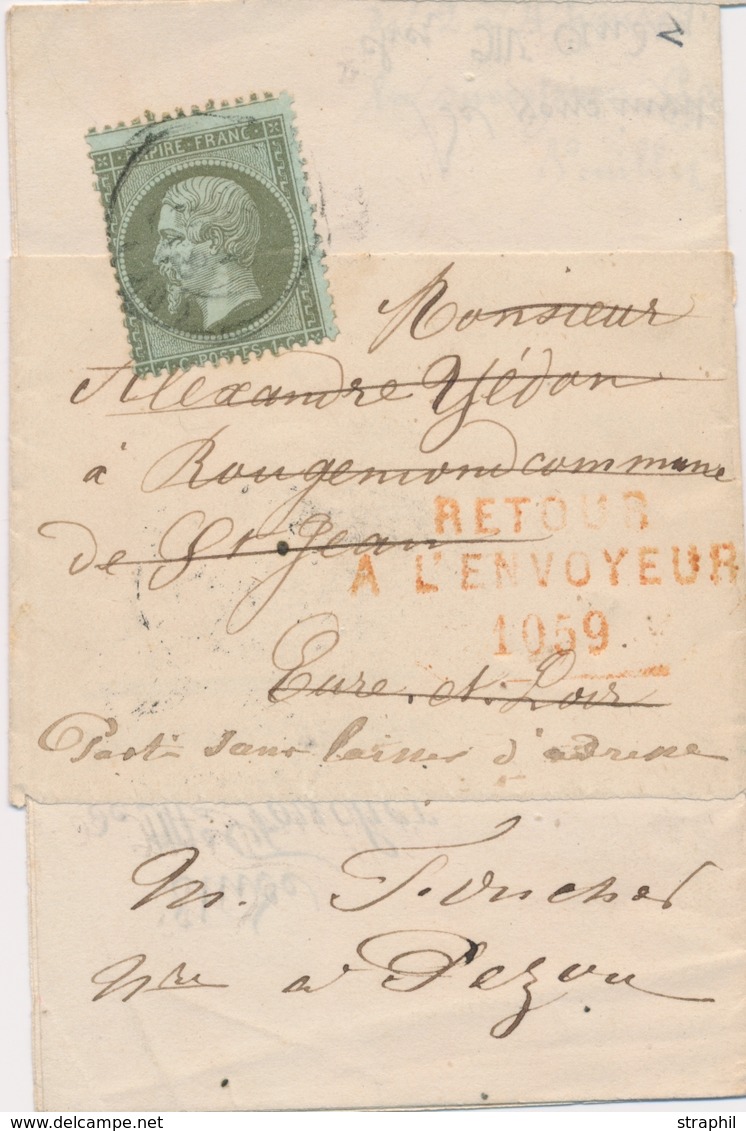 EMPIRE·FRANC·
1·C·POSTES·1·C·
Monsieur
Alexandre Yédon
à Rougemond commune
de St Jean
RETOUR
A L'ENVOYEUR
1059
Eure et Loir
Parti sans laisser d'adresse
M. Foucher
Nre a Pezou
straphil
delcampe.net